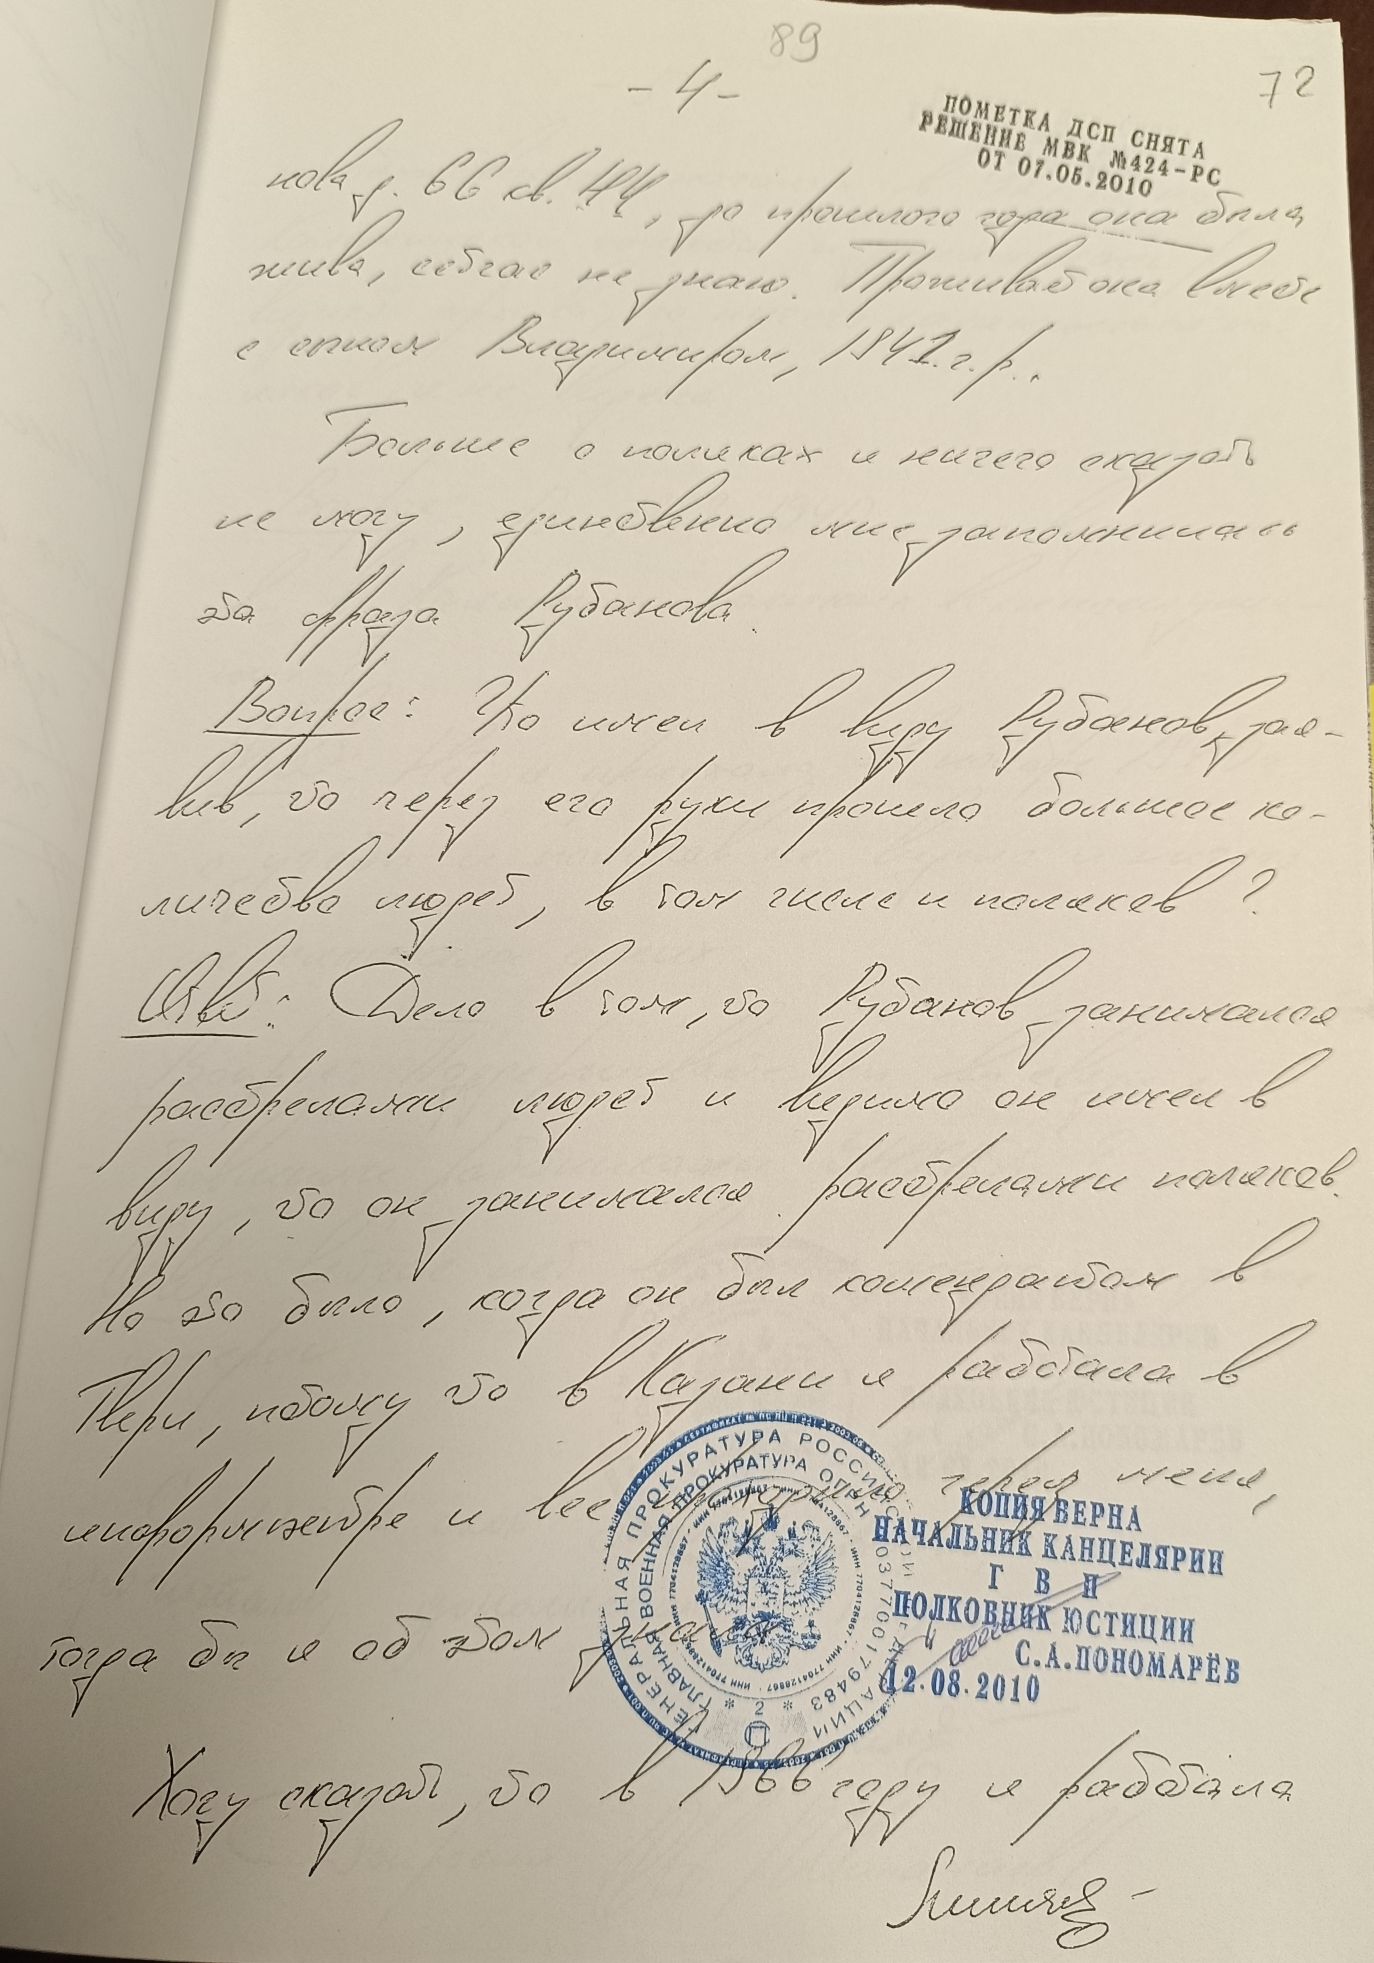 89
- 4 -
72
ПОМЕТКА ДСП СНЯТА
РЕШЕНИЕ МВК №424-РС
ОТ 07.05.2010
нова д. 66 кв. 44, до прошлого года она была
жива, сейчас не знаю. Проживает она вместе
с сыном Владимиром, 1941 г.р..
Больше о поляках я ничего сказать
не могу, единственно мне запомнилась
эта фраза Рубанова.
Вопрос: Что имел в виду Рубанов, зая-
вив, что через его руки прошло большое ко-
личество людей, в том числе и поляков?
Ответ: Дело в том, что Рубанов занимался
расстрелами людей и видимо он имел в
виду, что он занимался расстрелами поляков.
Но это было, когда он был комендантом в
Твери, потому что в Казани я работала в
и все через меня,
тогда бы я об этом знала
Хочу сказать, что в 1966 году я работала
ГЕНЕРАЛЬНАЯ ПРОКУРАТУРА РОССИЙСКОЙ ФЕДЕРАЦИИ
ГЛАВНАЯ ВОЕННАЯ ПРОКУРАТУРА ОГРН 1037700179483
ИНН 7704128867
* 2 *
КОПИЯ ВЕРНА
НАЧАЛЬНИК КАНЦЕЛЯРИИ
Г В П
ПОЛКОВНИК ЮСТИЦИИ
С.А.ПОНОМАРЁВ
12.08.2010